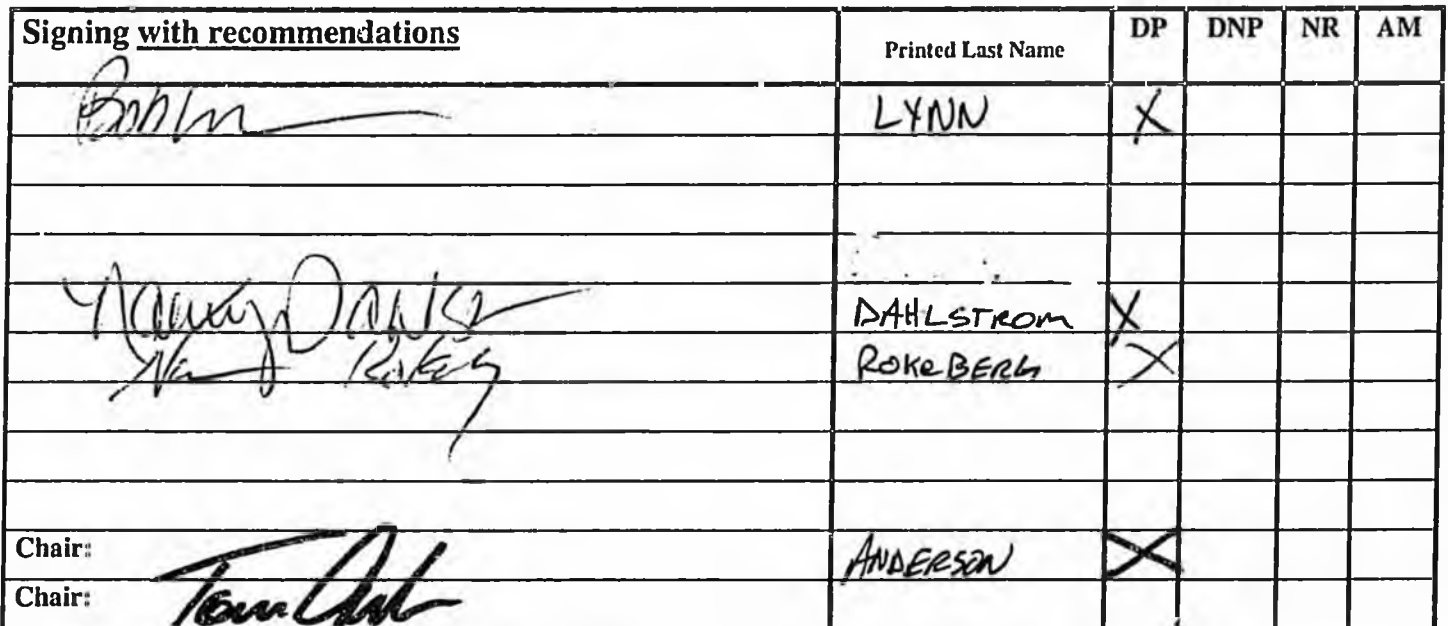 Signing with recommendations Printed Last Name DP DNP NR AM
LYNN X
Nancy DAHLSTROM X
ROKEBERG X
Chair: ANDERSON X
Chair: Tom